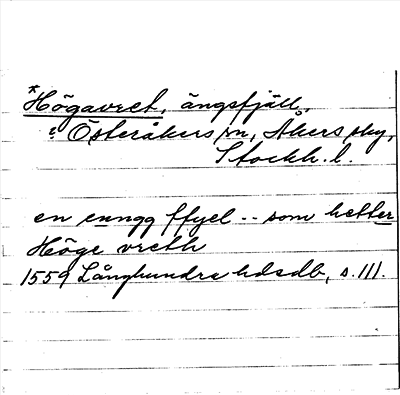 *Högavret, ängsfjäll,
i Österåkers sn, Åkers skg,
Stockh. l.
en enngg ffyel -- som hetter
Höge vreth
1559 Långhundra hdsdb, s. 111.